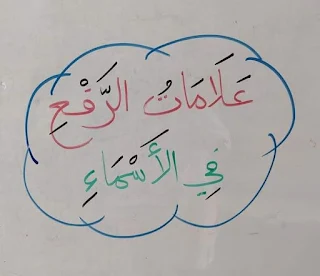 عَلَامَاتُ الرَّفْعِ
فِي الأَسْمَاءِ